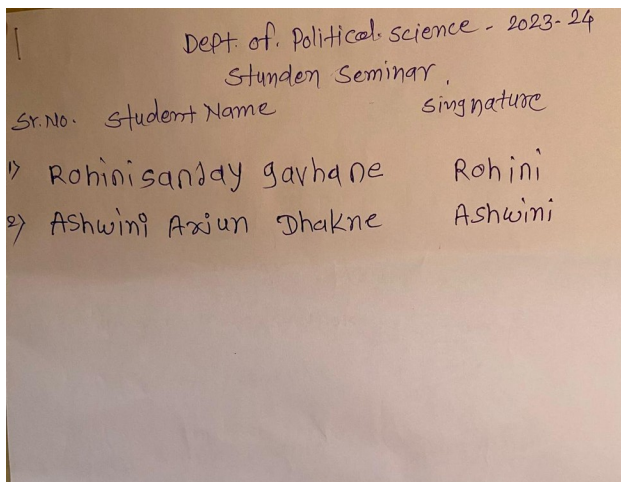 Dept. of. Political. science - 2023-24
Stunden Seminar.
Sr.No. Student Name Singnature
1) Rohini sanjay gavhane Rohini
2) Ashwini Arjun Dhakne Ashwini